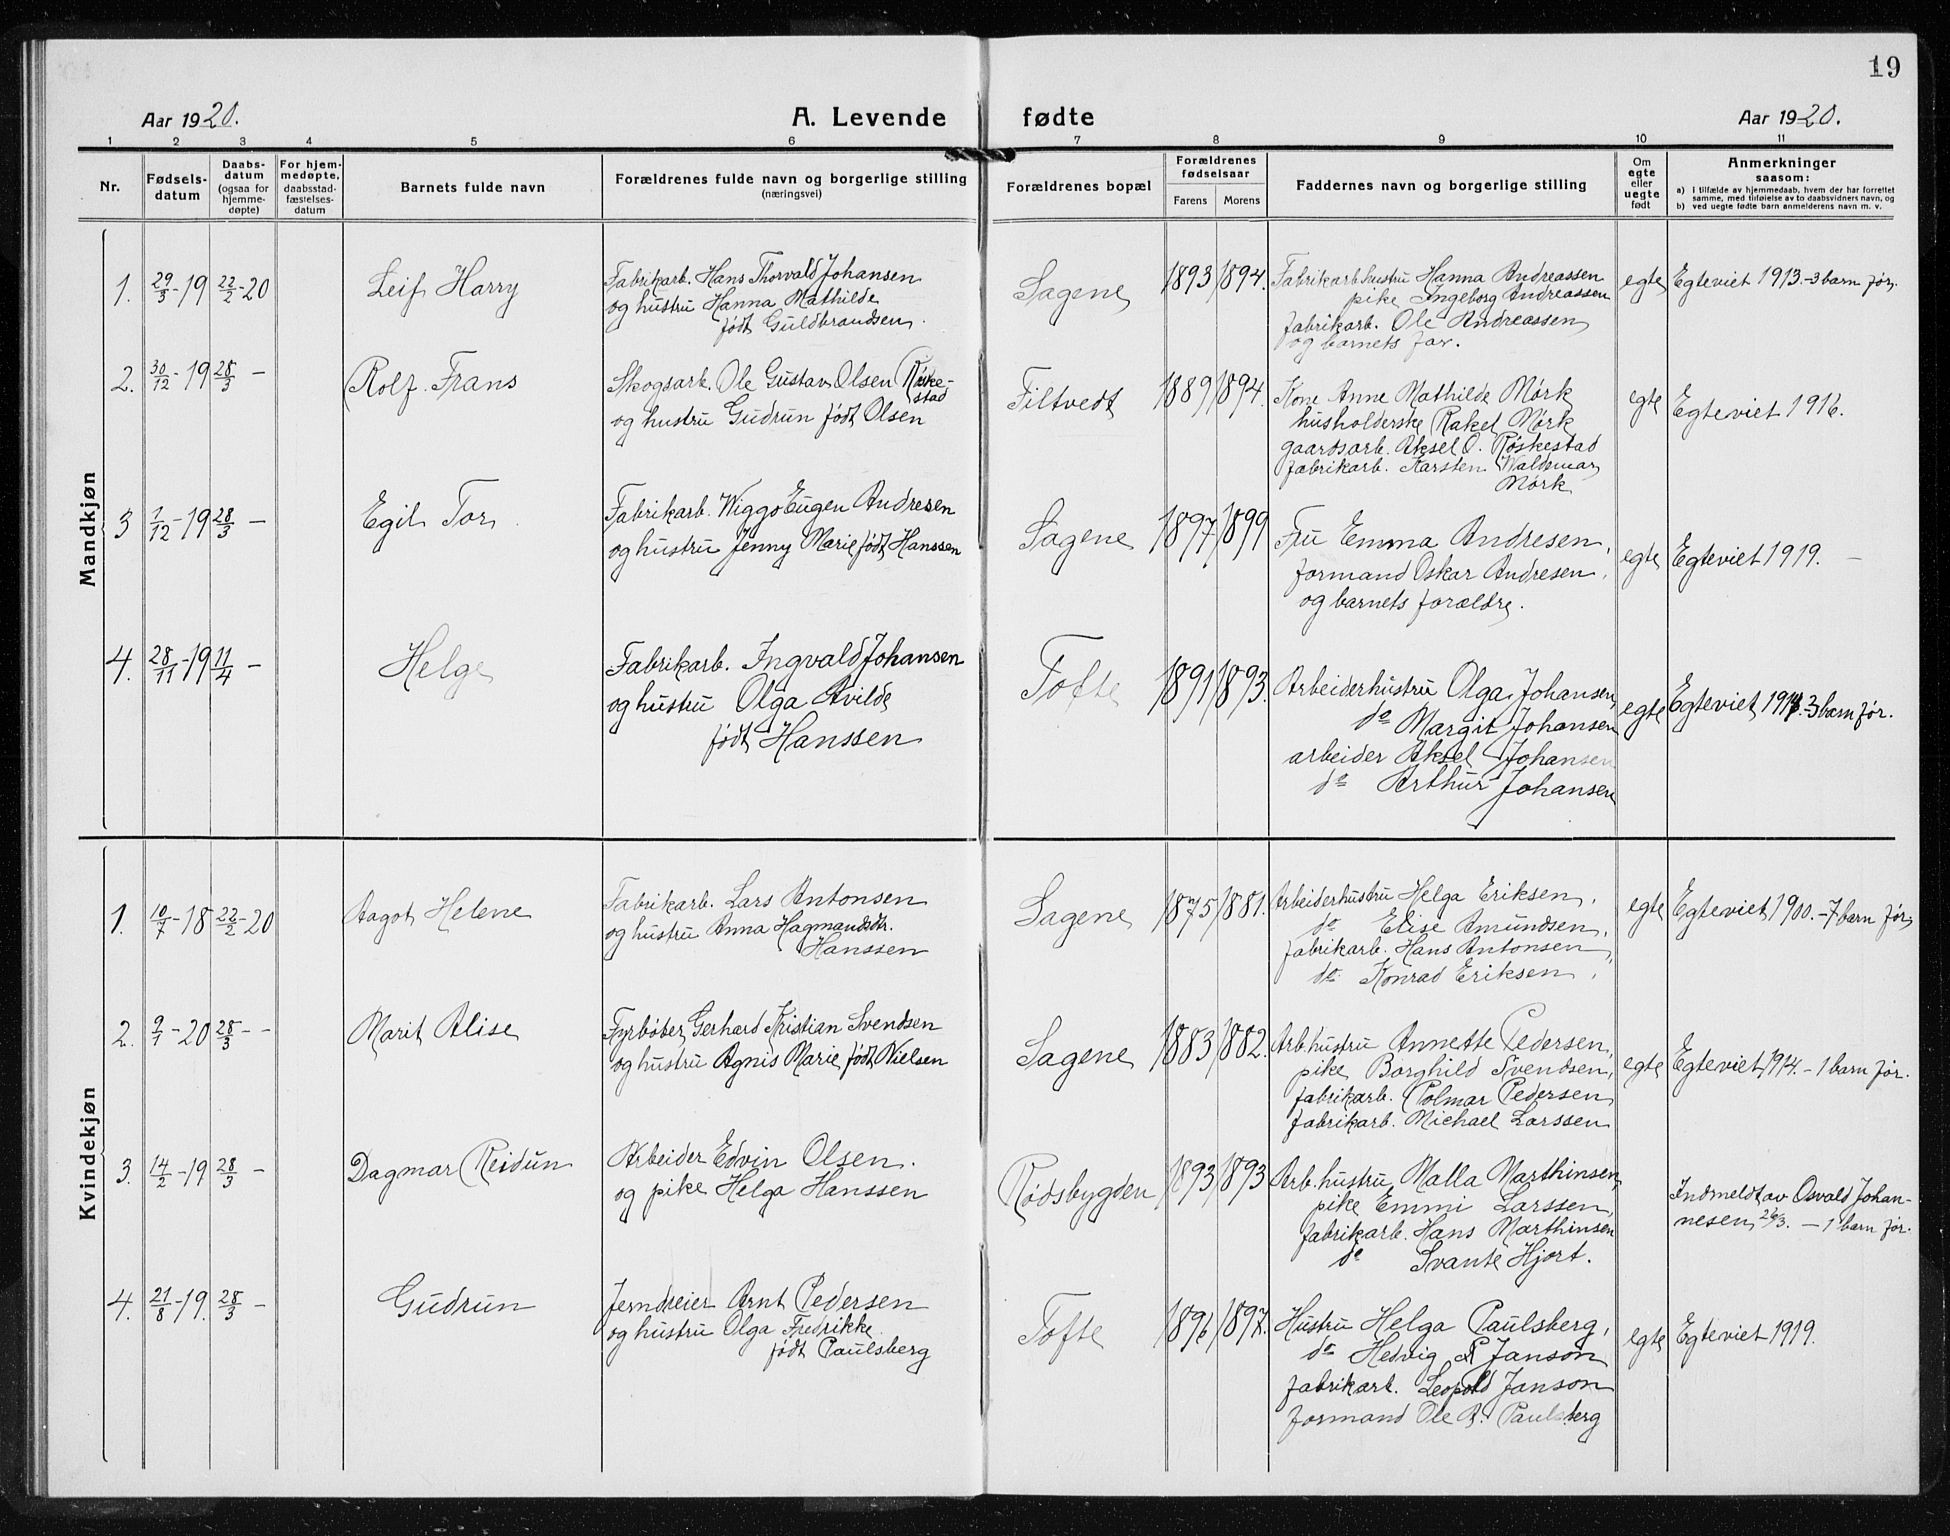 19
Aar 1920. A. Levende fødte Aar 1920.
1 2 3 4 5 6 7 8 9 10 11
Nr.
Fødsels-
datum
Daabs-
datum
(ogsaa for
hjemme-
døpte)
For hjem-
medøpte,
daabsstad-
fæstelses-
datum
Barnets fulde navn
Forældrenes fulde navn og borgerlige stilling
(næringsvei)
Forældrenes bopæl
Forældrenes
fødselsaar
Farens Morens
Faddernes navn og borgerlige stilling
Om
egte
eller
uegte
født
Anmerkninger
saasom:
a) i tilfælde av hjemmedaab, hvem der har forrettet
samme, med tilføielse av to daabsvidners navn, og
b) ved uegte fødte barn anmelderens navn m. v.
Mandkjøn
1. 29/3-19 22/2-20 Leif Harry
Fabrikarb. Hans Thorvald Johansen
og hustru Hanna Mathilde
født Guldbrandsen.
Sagene 1893 1894.
Fabrikarb.hustru Hanna Andreassen
pike Ingeborg Andreassen
fabrikarb. Ole Andreassen
og barnets far.
egte Egteviet 1913.-3 barn før.
2. 30/12-19 28/3 - Rolf Frans
Skogsark. Ole Gustav Olsen Røske-
stad
og hustru Gudrun født Olsen
Filtvedt 1889 1894.
Kone Anne Mathilde Mørk
husholderske Rakel Mørk
gaardsarb. Aksel O. Røskestad
fabrikarb. Karsten Waldemar
Mørk
egte Egteviet 1916.
3 1/12-19 28/3 - Egil Tor
Fabrikarb. Wiggo Eugen Andresen
og hustru Jenny Marie født Hanssen
Sagene 1897 1899
Fru Emma Andresen,
formand Oskar Andresen,
og barnets forældre.
egte Egteviet 1919. -
4. 28/11-19 11/4 - Helge
Fabrikarb. Ingvald Johansen
og hustru Olga Avilde
født Hanssen
Tofte 1891 1893.
Arbeiderhustru Olga Johansen,
do Margit Johansen
arbeider Aksel Johansen
do Arthur Johansen
egte Egteviet 1914.-3 barn før.
Kvindekjøn
1. 10/7-18 22/2-20 Aagot Helene
Fabrikarb. Lars Antonsen
og hustru Anna Hagmandsdtr.
Hanssen
Sagene 1875 1881.
Arbeiderhustru Helga Eriksen,
do Elise Amundsen,
fabrikarb. Hans Antonsen,
do. Konrad Eriksen,
egte Egteviet 1900.-7 barn før,
2. 9/1-20 28/3 - - Marit Alise
Fyrbøter Gerhard Kristian Svendsen
og hustru Agnis Marie født Nielsen
Sagene 1883 1882.
Arb.hustru Annette Pedersen,
pike Borghild Svendsen,
fabrikarb. Polmar Pedersen
fabrikarb. Michael Larssen
egte Egteviet 1914.-1 barn før.
3. 14/2-19 28/3 - Dagmar Reidun
Arbeider Edvin Olsen.
og pike Helga Hanssen
Rødsbygden 1893 1893
Arb.hustru Malla Marthinsen,
pike Emmi Larssen,
fabrikarb. Hans Marthinsen
do Svante Hjort.
Indmeldt av Osvald Johan-
nesen 26/3. - 1 barn før.
4. 21/8-19. 28/3 - Gudrun
Jerndreier Arnt Pedersen
og hustru Olga Fredrikke
født Paulsberg
Tofte 1896 1897.
Hustru Helga Paulsberg,
do Hedvig Janson
fabrikarb. Leopold Janson
formand Ole A. Paulsberg
egte Egteviet 1919.